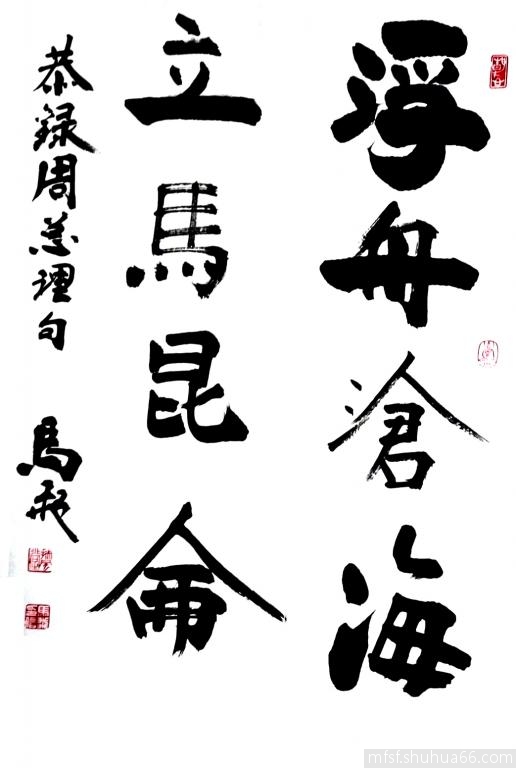 浮舟滄海
立馬昆侖
恭録周总理句
馬
mfsf.shuhua66.com